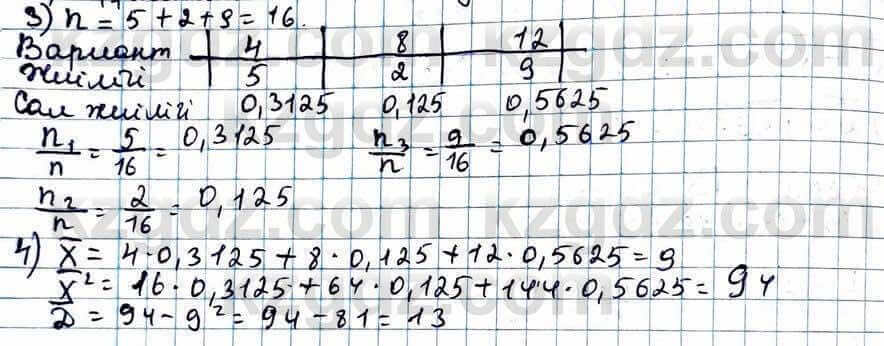 3) n = 5 + 2 + 9 = 16.
Вариант 4 8 12
Жиілігі 5 2 9
Сал жиілігі 0,3125 0,125 0,5625
n₁/n = 5/16 = 0,3125 n₃/n = 9/16 = 0,5625
n₂/n = 2/16 = 0,125
4) X̄ = 4·0,3125 + 8·0,125 + 12·0,5625 = 9
X̄² = 16·0,3125 + 64·0,125 + 144·0,5625 = 94
D = 94 - 9² = 94 - 81 = 13
kzgdz.com